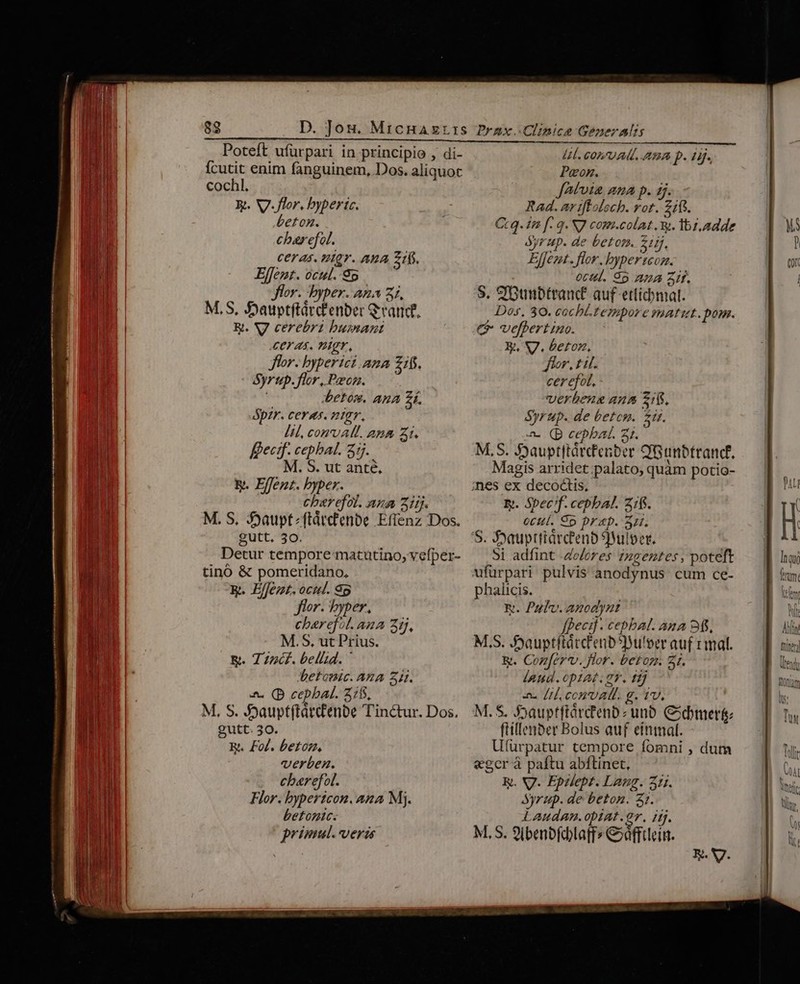 88 D. Joh. Michaelis Prax. Clinica Generalis
Poteſt uſurpari in principio, di-
ſcutit enim ſanguinem, Dos. aliquot
cochl.
℞. 🜄. flor. hyperic.
beton.
cherefol.
ceras. nigr. ana ℥iß.
Eſſent. ocul. ♋
flor. hyper. ana ʒi.
M. S. Hauptſtärckender Tranck.
℞. 🜄 cerebri humani
ceras. nigr.
flor. hyperici ana ℥iß.
Syrup. flor. Pæon.
beton. ana ℥i.
Spir. ceras. nigr.
lil. convall. ana ʒi.
ſpecif. cephal. ʒij.
M. S. ut antè.
℞. Eſſent. hyper.
cherefol. ana ʒiij.
M. S. Haupt-ſtärckende Eſſenz Dos.
gutt. 30.
Detur tempore matutino, veſper-
tinô & pomeridano.
℞. Eſſent. ocul. ♋
flor. hyper.
cherefol. ana ʒij.
M. S. ut Prius.
℞. Tinct. bellid.
betonic. ana ʒii.
cephal. ʒiß.
M. S. Hauptſtärckende Tinctur. Dos.
gutt. 30.
℞. Fol. beton.
verben.
cherefol.
Flor. hypericon. ana Mj.
betonic.
primul. veris
lil. convall. ana p. iij.
Pæon.
ſalviæ ana p. ij.
Rad. ariſtoloch. rot. ʒiß.
C. q. in ſ. q. 🜄 com. colat. ℞. ℔i. adde
Syrup. de beton. ℥iij.
Eſſent. flor. hypericon.
ocul. ♋ ana ʒii.
S. Wundtranck auf etlichmal.
Dos. 30. cochl. tempore matut. pom.
& veſpertino.
℞. 🜄. beton.
flor. til.
cerefol.
verbenæ ana ℥iß.
Syrup. de beton. ℥ii.
cephal. ʒi.
M. S. Hauptſtärckender Wundtranck.
Magis arridet palato, quàm potio-
nes ex decoctis.
℞. Specif. cephal. ʒiß.
ocul. ♋ præp. ʒii.
S. Hauptſtärckend Pulver.
Si adſint dolores ingentes, poteſt
uſurpari pulvis anodynus cum ce-
phalicis.
℞. Pulv. anodyni
ſpecif. cephal. ana ℈ß.
M. S. Hauptſtärckend Pulver auf 1 mal.
℞. Conſerv. flor. beton. ʒi.
laud. opiat. gr. iij
lil. convall. g. iv.
M. S. Hauptſtärckend- und Schmertz-
ſtillender Bolus auf einmal.
Uſurpatur tempore ſomni, dum
æger à paſtu abſtinet.
℞. 🜄. Epilept. Lang. ʒii.
Syrup. de beton. ʒi.
Laudan. opiat. gr. iij.
M. S. Abendſchlaff-Säfftlein.
℞. 🜄.